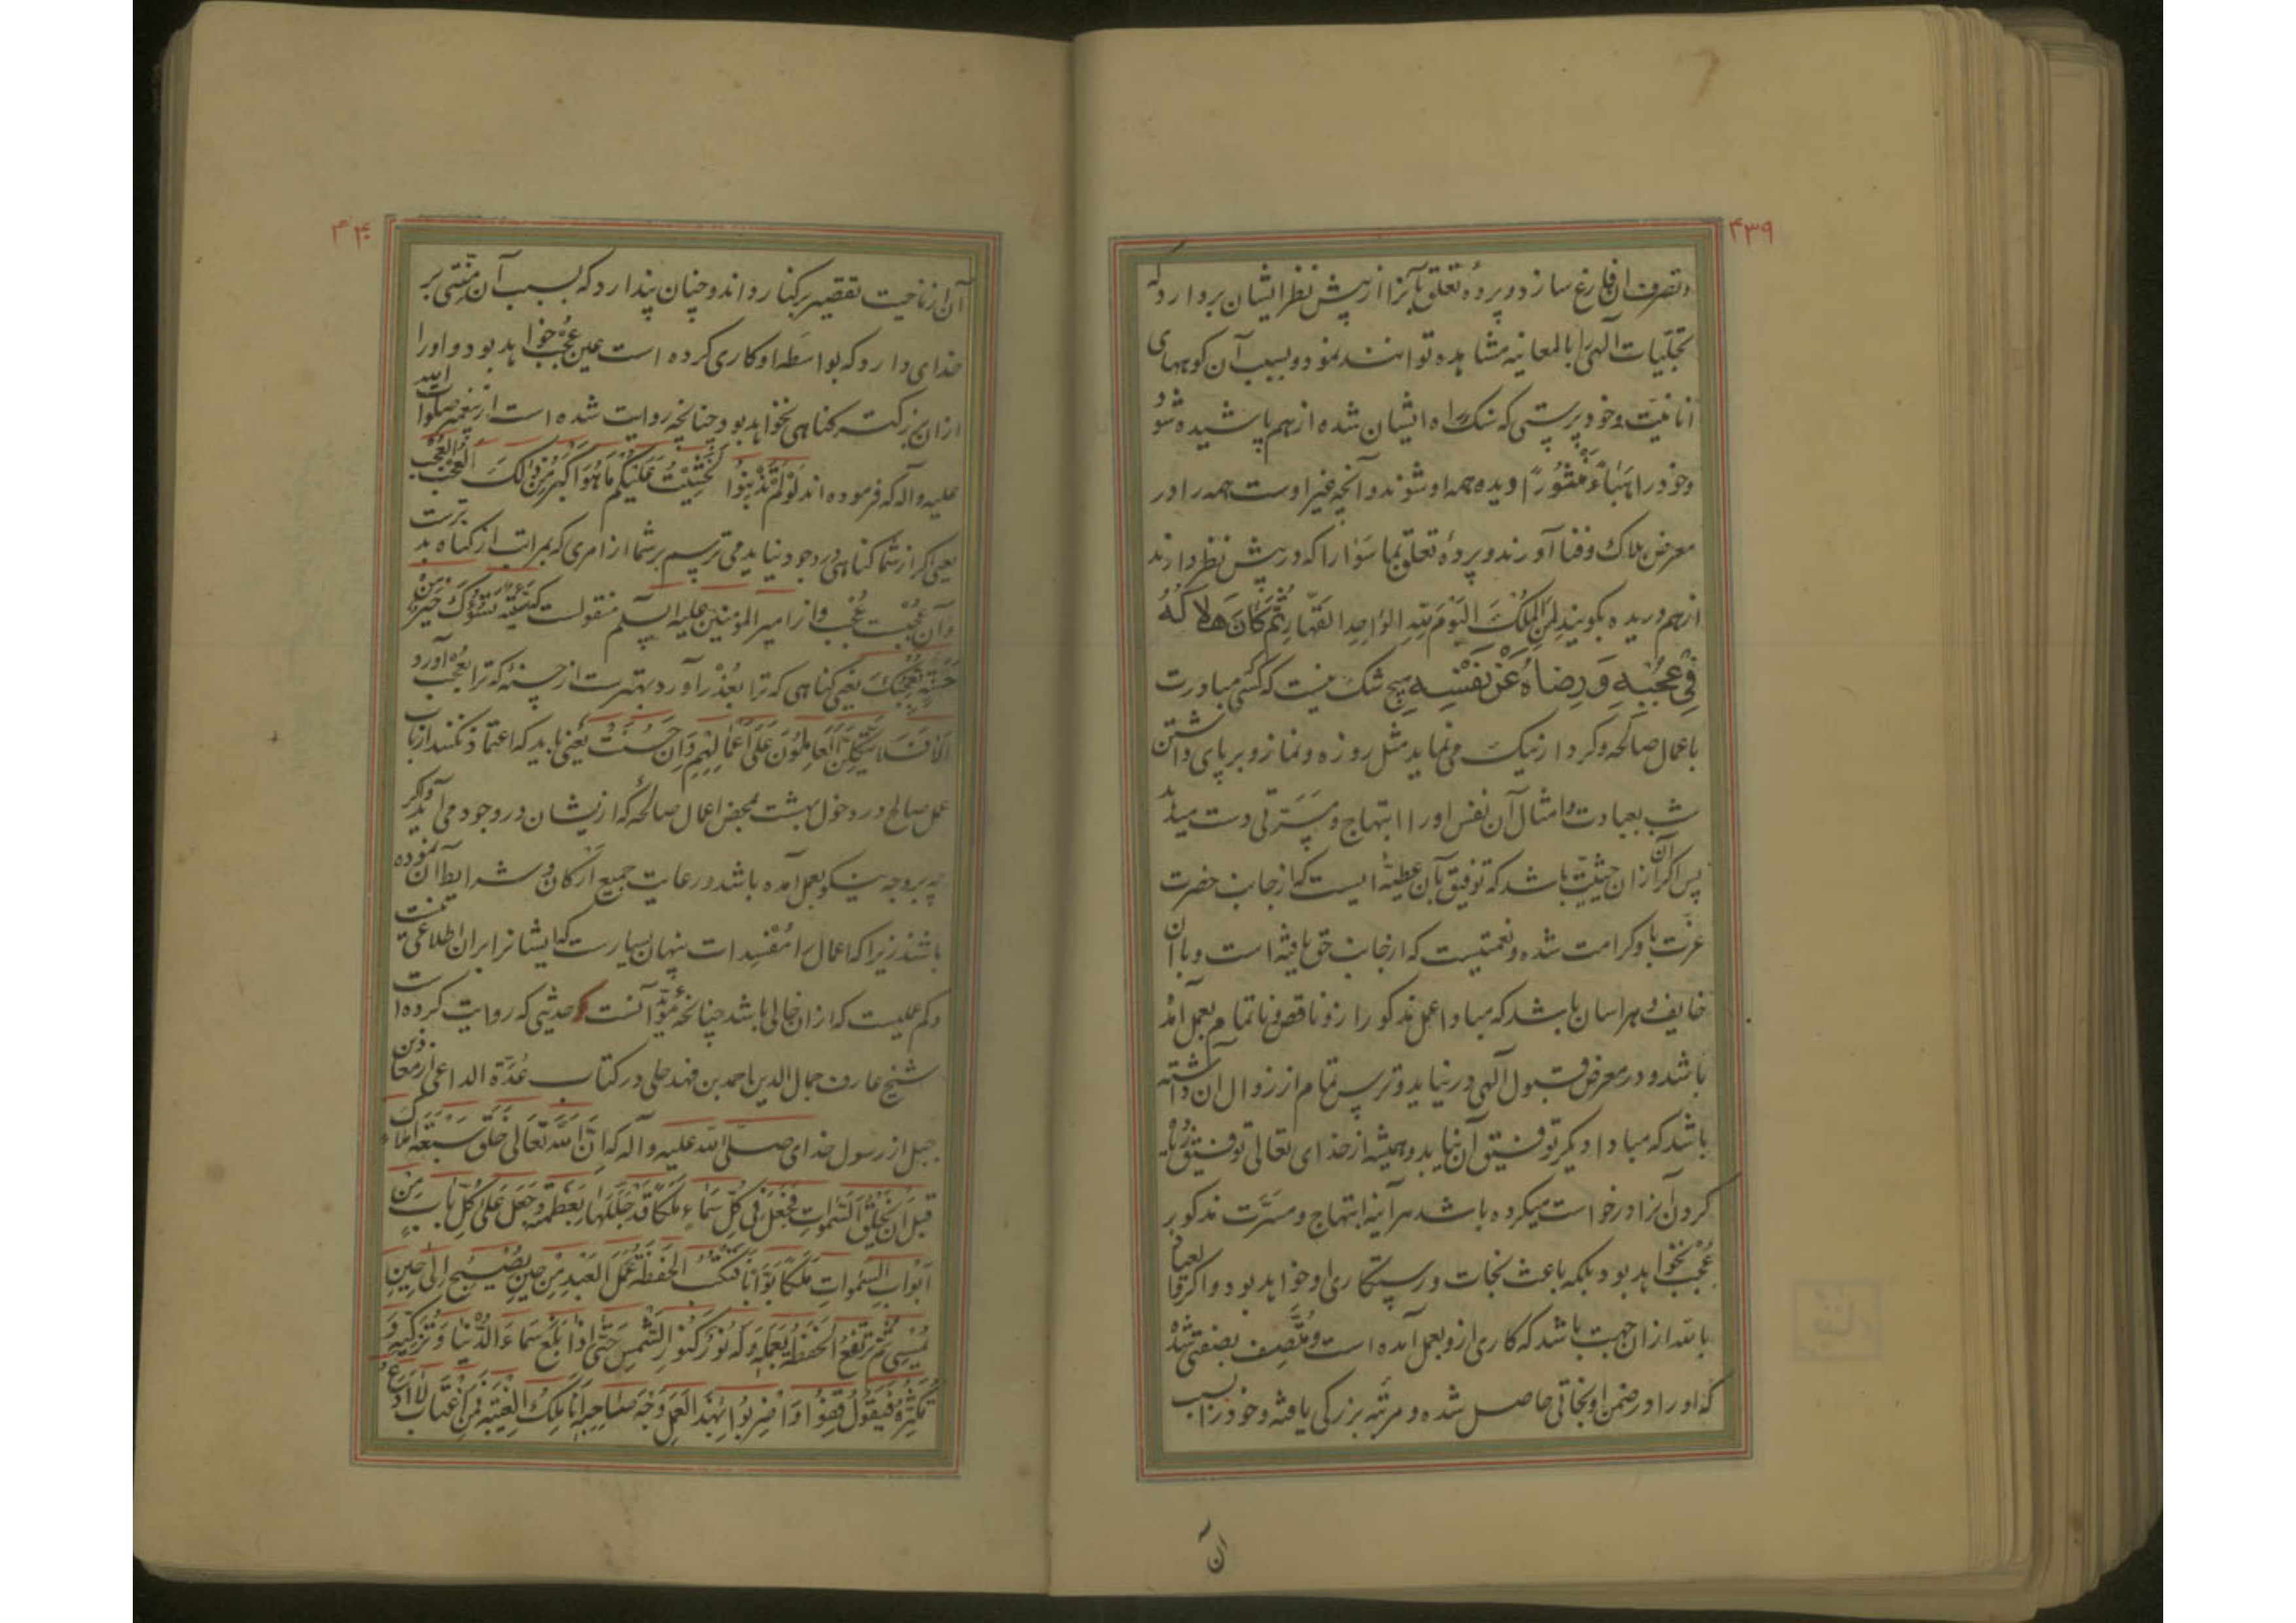 ۴۳۹
و تصرف ان فارغ سازد و پردهٔ تعلق بآنرا از پیش نظر ایشان بردارد که
تجلّیات آلهیرا بالمعاینه مشاهده توانند نمود و بسبب آن کوههای
انانیّت و خودپرستی که سنک راه ایشان شده از هم پاشیده شود
و خود را هَبَاءً مَنْثُورًا دیده همه او شوند و آنچه غیر اوست همه را در
معرض هلاک و فنا آورند و پردهٔ تعلق بماسوا را که در پیش نظر دارند
از هم دریده بکویند لِمَنِ المُلکُ الیَومَ لِلّهِ الوَاحِدِ القَهّارِ ثُمَّ کَانَ هَلَاکُهُ
فِی عُجْبِهِ وَ رِضَاهُ عَنْ نَفْسِهِ هیچ شک نیست که کسی مبادرت
باعمال صالحه و کردار نیک می نماید مثل روزه و نماز و برپای داشتن
شب بعبادت و امثال آن نفس او را ابتهاج و مسَرّتی دست میدهد
پس اکر آن ازان حیثیّت باشد که توفیق بآن عطیّه ایست که از جانب حضرت
عزّت باو کرامت شده و نعمتیست که از جانب حق یافته است و با آن
خایف و هراسان باشد که مبادا عمل مذکور ازو ناقص و ناتمام بعمل آمده
باشد و در معرض قبول آلهی در نیاید و ترس تمام از زوال ان داشته
باشد که مبادا دیکر توفیق آن نیابد و همیشه از خدای تعالی توفیق زیاده
کردن آنرا درخواست میکرده باشد هر آینه ابتهاج و مسَرّت مذکور
عُجب نخواهد بود بلکه باعث نجات و رستکاری او خواهد بود و اکر عیاذا
بالله ازان جهت باشد که کاری ازو بعمل آمده است و متّصِف بصفتی شده
که او را در ضمن او نجاتی حاصل شده و مرتبه بزرکی یافته و خود را بسبب
آن
۴۴۰
آن از ناحیت تقصیر برکنار داند و چنان پندارد که بسبب آن منّتی بر
خدای دارد که بواسطه او کاری کرده است عین عُجب خواهد بود و او را
ازان بزرکتر کناهی نخواهد بود چنانچه روایت شده است از پیغمبر صلوات الله
علیه و اله که فرموده اند لَوْ لَمْ تُذْنِبُوا لَخَشِیْتُ عَلَیْکُم مَا هُوَ اَکْبَرُ مِنْ ذلِکَ العُجْبُ العُجْبُ
یعنی اکر از شما کناهی در وجود نیاید می ترسم بر شما از امری که بمراتب از کناه بدترست
و آن عُجبست عُجب و از امیر المؤمنین علیه السلم منقولست که سَیِّئَةٌ تَسُوُؤکَ خَیْرٌ مِنْ
حَسَنَةٍ تُعْجِبُکَ یعنی کناهی که ترا بعُذر آورد بهترست از حسنه که ترا بعُجب آورد
اَلَا فَلَا یَتَّکِلَنَّ العَامِلُونَ عَلی اَعْمَالِهِمْ وَ اِن حَسُنَتْ یعنی باید که اعتماد نکنند ارباب
عمل صالح در دخول بهشت بمحض اعمال صالحه که ازیشان در وجود می آید و اکر
چه بر وجه نیکو بعمل آمده باشد و رعایت جمیع ارکان و شرایط آن نموده
باشند زیرا که اعمال را مُفسِدات پنهان بسیارست که ایشانرا بران اطلاعی نیست
و کم عملیست که ازان خالی باشد چنانچه مؤیّد آنست حدیثی که روایت کرده است
شیخ عارف جمال الدین احمد بن فهد حلی در کتاب عُدّة الداعی از معاذ بن
جبل از رسول خدای صلّی الله علیه و آله که اِنَّ اللهَ تَعَالی خَلَقَ سَبْعَةَ اَملَاکٍ
قَبلَ اَن یَخْلُقَ السَّموَاتِ فَجَعَلَ فِی کُلِّ سَمَاءٍ مَلَکًا قَد جَلَّلَهَا بِعَظَمَتِه وَ جَعَلَ عَلی کُلِّ بَابٍ مِن
اَبْوَابِ السَّموَاتِ مَلَکًا بَوَّابًا فَتَکْتُبُ الحَفَظَةُ عَمَلَ العَبْدِ مِنْ حِینِ یُصْبِحُ اِلی حِینِ
یُمْسِی ثُمَّ تَرْتَفِعُ الحَفَظَةُ بِعَمَلِهِ وَ لَهُ نُورٌ کَنُورِ الشَّمْسِ حَتّی اِذَا بَلَغَ سَمَاءَ الدُّنْیَا وَ تُزَکِّیْهِ وَ
تُکَثِّرُهُ فَیَقُولُ قِفُوا وَ اضْرِبُوا بِهَذَا العَمَلِ وَجْهَ صَاحِبِهِ اَنَا مَلَکُ الغِیْبَةِ فَمَنِ اغْتَابَ لَا اَدَعُ